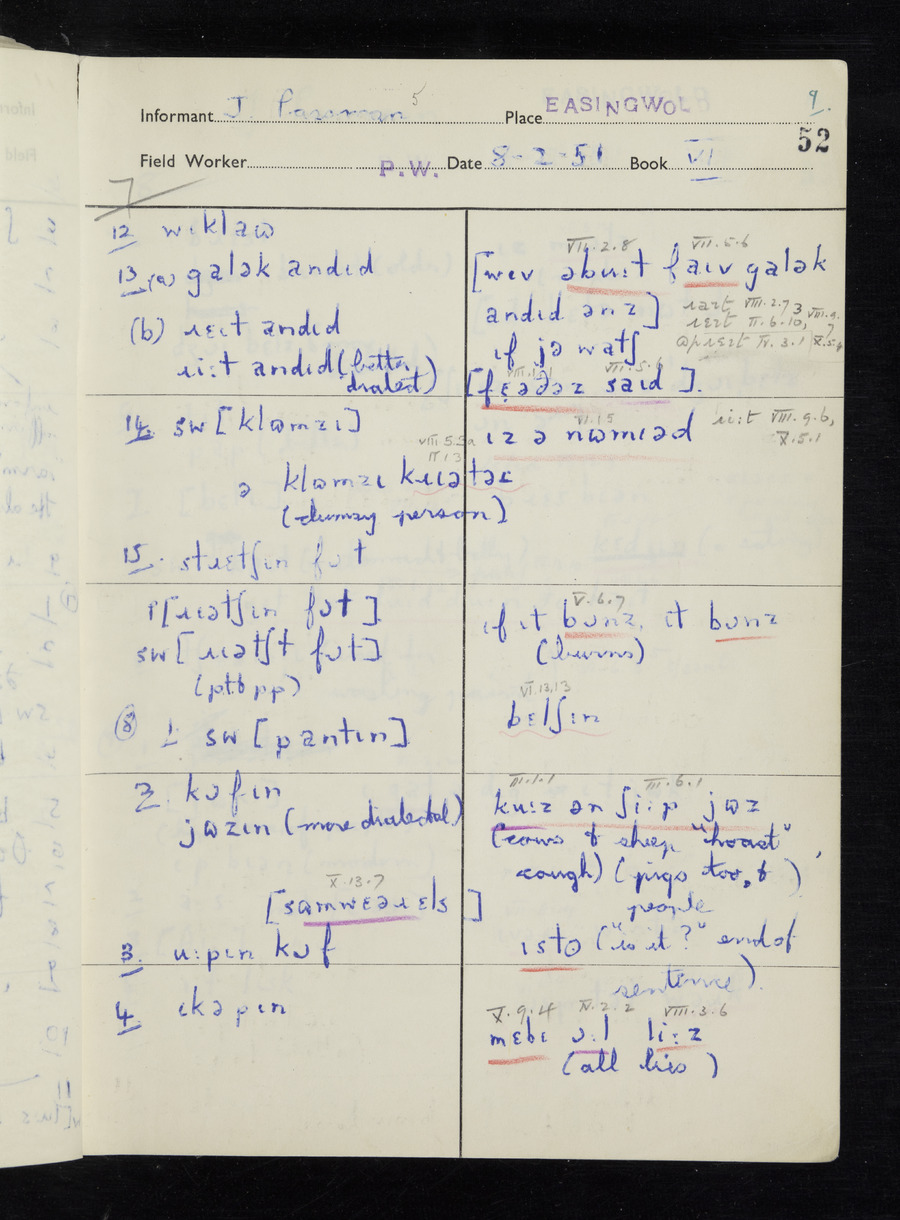 Informant J. Pearman 5 Place EASINGWOLD 9.
52
Field Worker P.W. Date 8-2-51 Book VI
7
12 wɪklaɷ
13 (a) galək andɪd
(b) ɹɛɪt andɪd
ɹiːt andɪd (better dialect)
14. sw [klɒmzɪ]
VIII 5.5a
ə klɒmzɪ kɹɪətəɛ
(clumsy person)
15. stɹɛtʃɪn fʊt
[ɹɪətʃɪn fʊt]
sw [ɹɪətʃt fʊt]
(pt & pp)
(8) 1. sw [pantɪn]
2. kɔfɪn
jɒzɪn (more dialectal)
X.13.7
[samwɛəɹ ɛls]
3. uːpɪn kɔf
4. ɪkəpɪn
VII.2.8 VII.5.6
[wɛv əbuːt faɪv galək
andɪd ənz]
ɹɛɪt VIII.2.7
II.6.10,
IV.3.1
ɪf jə watʃ
VIII.1.1 VIII.5.6
[fɛəðəz saɪd].
VI.1.5
ɪz ə nɒmɪəd
ɹiːt VIII.9.6,
X.5.1
V.6.7
ɪf ɪt bʊnz, ɪt bʊnz
(burns)
VI.13.13
bɛlʃɪn
III.1.1 III.6.1
kuːz ən ʃiːp jɒz
(cows & sheep "hoast",
cough) (pigs too, &
people)
ɪstə ("is it?" end of
sentence).
X.9.4 IV.2.2 VIII.3.6
mɛbɪ ɔːl liːz
(all lies)